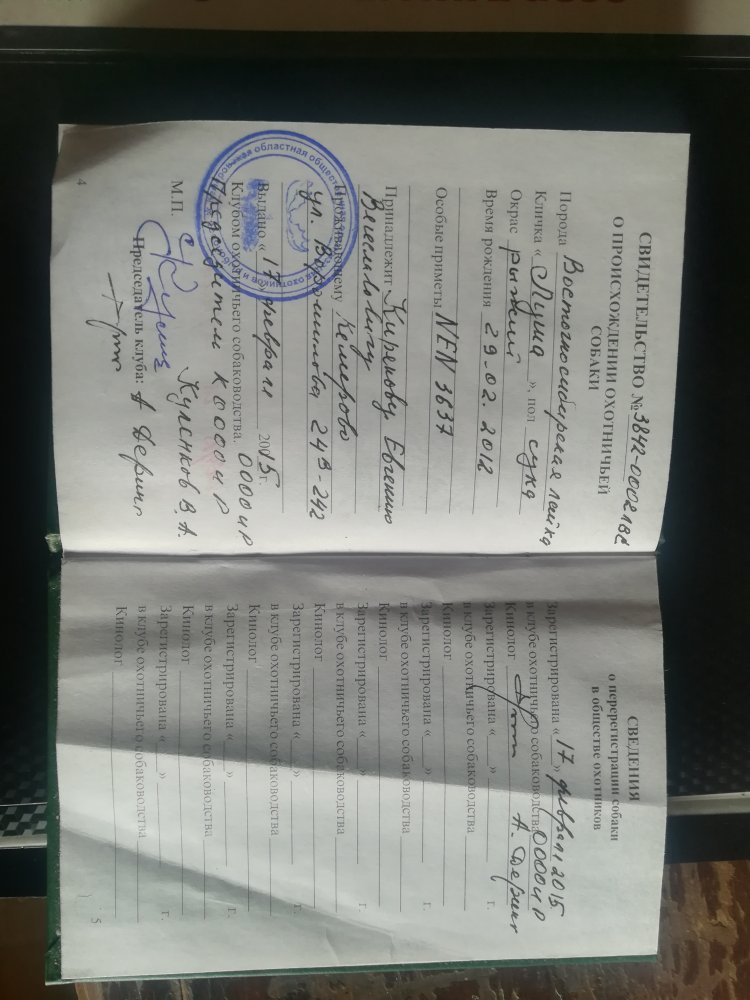 СВИДЕТЕЛЬСТВО № 3842-0002182
О ПРОИСХОЖДЕНИИ ОХОТНИЧЬЕЙ
СОБАКИ
Порода Восточносибирская лайка
Кличка « Луша », пол сука
Окрас рыжий
Время рождения 29-02. 2012
Особые приметы NEN 3637
Принадлежит Евгению
Проживающему Кемерово
ул. 24в-242
Выдано « 17 » февраля 2015 г.
Клубом охотничьего собаководства. ОООиР
КОООиР
М.П. Куленков В. А.
Председатель клуба: А Деринг
4
СВЕДЕНИЯ
о перерегистрации собаки
в обществе охотников
Зарегистрирована « 17 » февраля 2015
в клубе охотничьего собаководства ОООиР
Кинолог А. Деринг
Зарегистрирована « » г.
в клубе охотничьего собаководства
Кинолог
Зарегистрирована « » г.
в клубе охотничьего собаководства
Кинолог
Зарегистрирована « » г.
в клубе охотничьего собаководства
Кинолог
Зарегистрирована « » г.
в клубе охотничьего собаководства
Кинолог
Зарегистрирована « » г.
в клубе охотничьего собаководства
Кинолог
Зарегистрирована « » г.
в клубе охотничьего собаководства
Кинолог
5